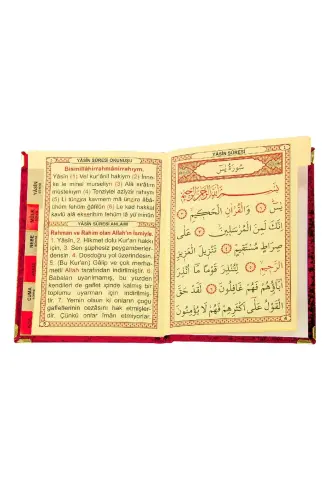 YÂSÎN SÛRESİ OKUNUŞU
Bismillâhirrahmânirrahîym.
Yâsîn (1) Vel kur'ânil hakiym (2) İnne-
ke le minel mürseliyn (3) Alâ sırâtîm
müstekiym (4) Tenziylel aziyzir rahiym
(5) Li tünzira kavmen mâ ünzira âbâ-
ühüm fehüm gâfilûn (6) Le kad hakkal
kavlü alâ ekserihim fehüm lâ yü'minûn
YÂSÎN SÛRESİ ANLAMI
Rahman ve Rahim olan Allah'ın ismiyle.
1. Yâsîn, 2. Hikmet dolu Kur'an hakkı
için, 3. Sen şüphesiz peygamberler-
densin. 4. Dosdoğru yol üzerindesin.
5. (Bu Kur'an) Gâlip ve çok merha-
metli Allah tarafından indirilmiştir. 6.
Babaları uyarılmamış, bu yüzden
kendileri de gaflet içinde kalmış bir
toplumu uyarman için indirilmiş-
tir. 7. Yemin olsun ki onların çoğu
gafletlerinin cezasını hak etmişler-
dir. Çünkü onlar îmân etmiyorlar.
YÂSÎN SÛRESİ
سُورَةُ يٰسٓ
بِسْمِ اللّٰهِ الرَّحْمٰنِ الرَّحِيمِ
يٰسٓ ١ وَالْقُرْاٰنِ الْحَكِيمِ ٢
اِنَّكَ لَمِنَ الْمُرْسَلِينَ ٣ عَلٰى
صِرَاطٍ مُسْتَقِيمٍ ٤ تَنْزِيلَ الْعَزِيزِ
الرَّحِيمِ ٥ لِتُنْذِرَ قَوْمًا مَٓا اُنْذِرَ
اٰبَٓاؤُهُمْ فَهُمْ غَافِلُونَ ٦ لَقَدْ حَقَّ
الْقَوْلُ عَلٰٓى اَكْثَرِهِمْ فَهُمْ لَا يُؤْمِنُونَ
YÂSÎN
MÜLK
NEBE
CUMA